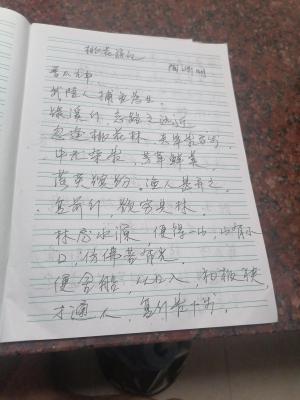 桃花源记
陶渊明
晋太元中，
武陵人捕鱼为业。
缘溪行，忘路之远近
忽逢桃花林，夹岸数百步，
中无杂树，芳草鲜美，
落英缤纷，渔人甚异之，
复前行，欲穷其林。
林尽水源，便得一山，山有小
口，仿佛若有光，
便舍船，从口入，初极狭，
才通人，复行数十步，